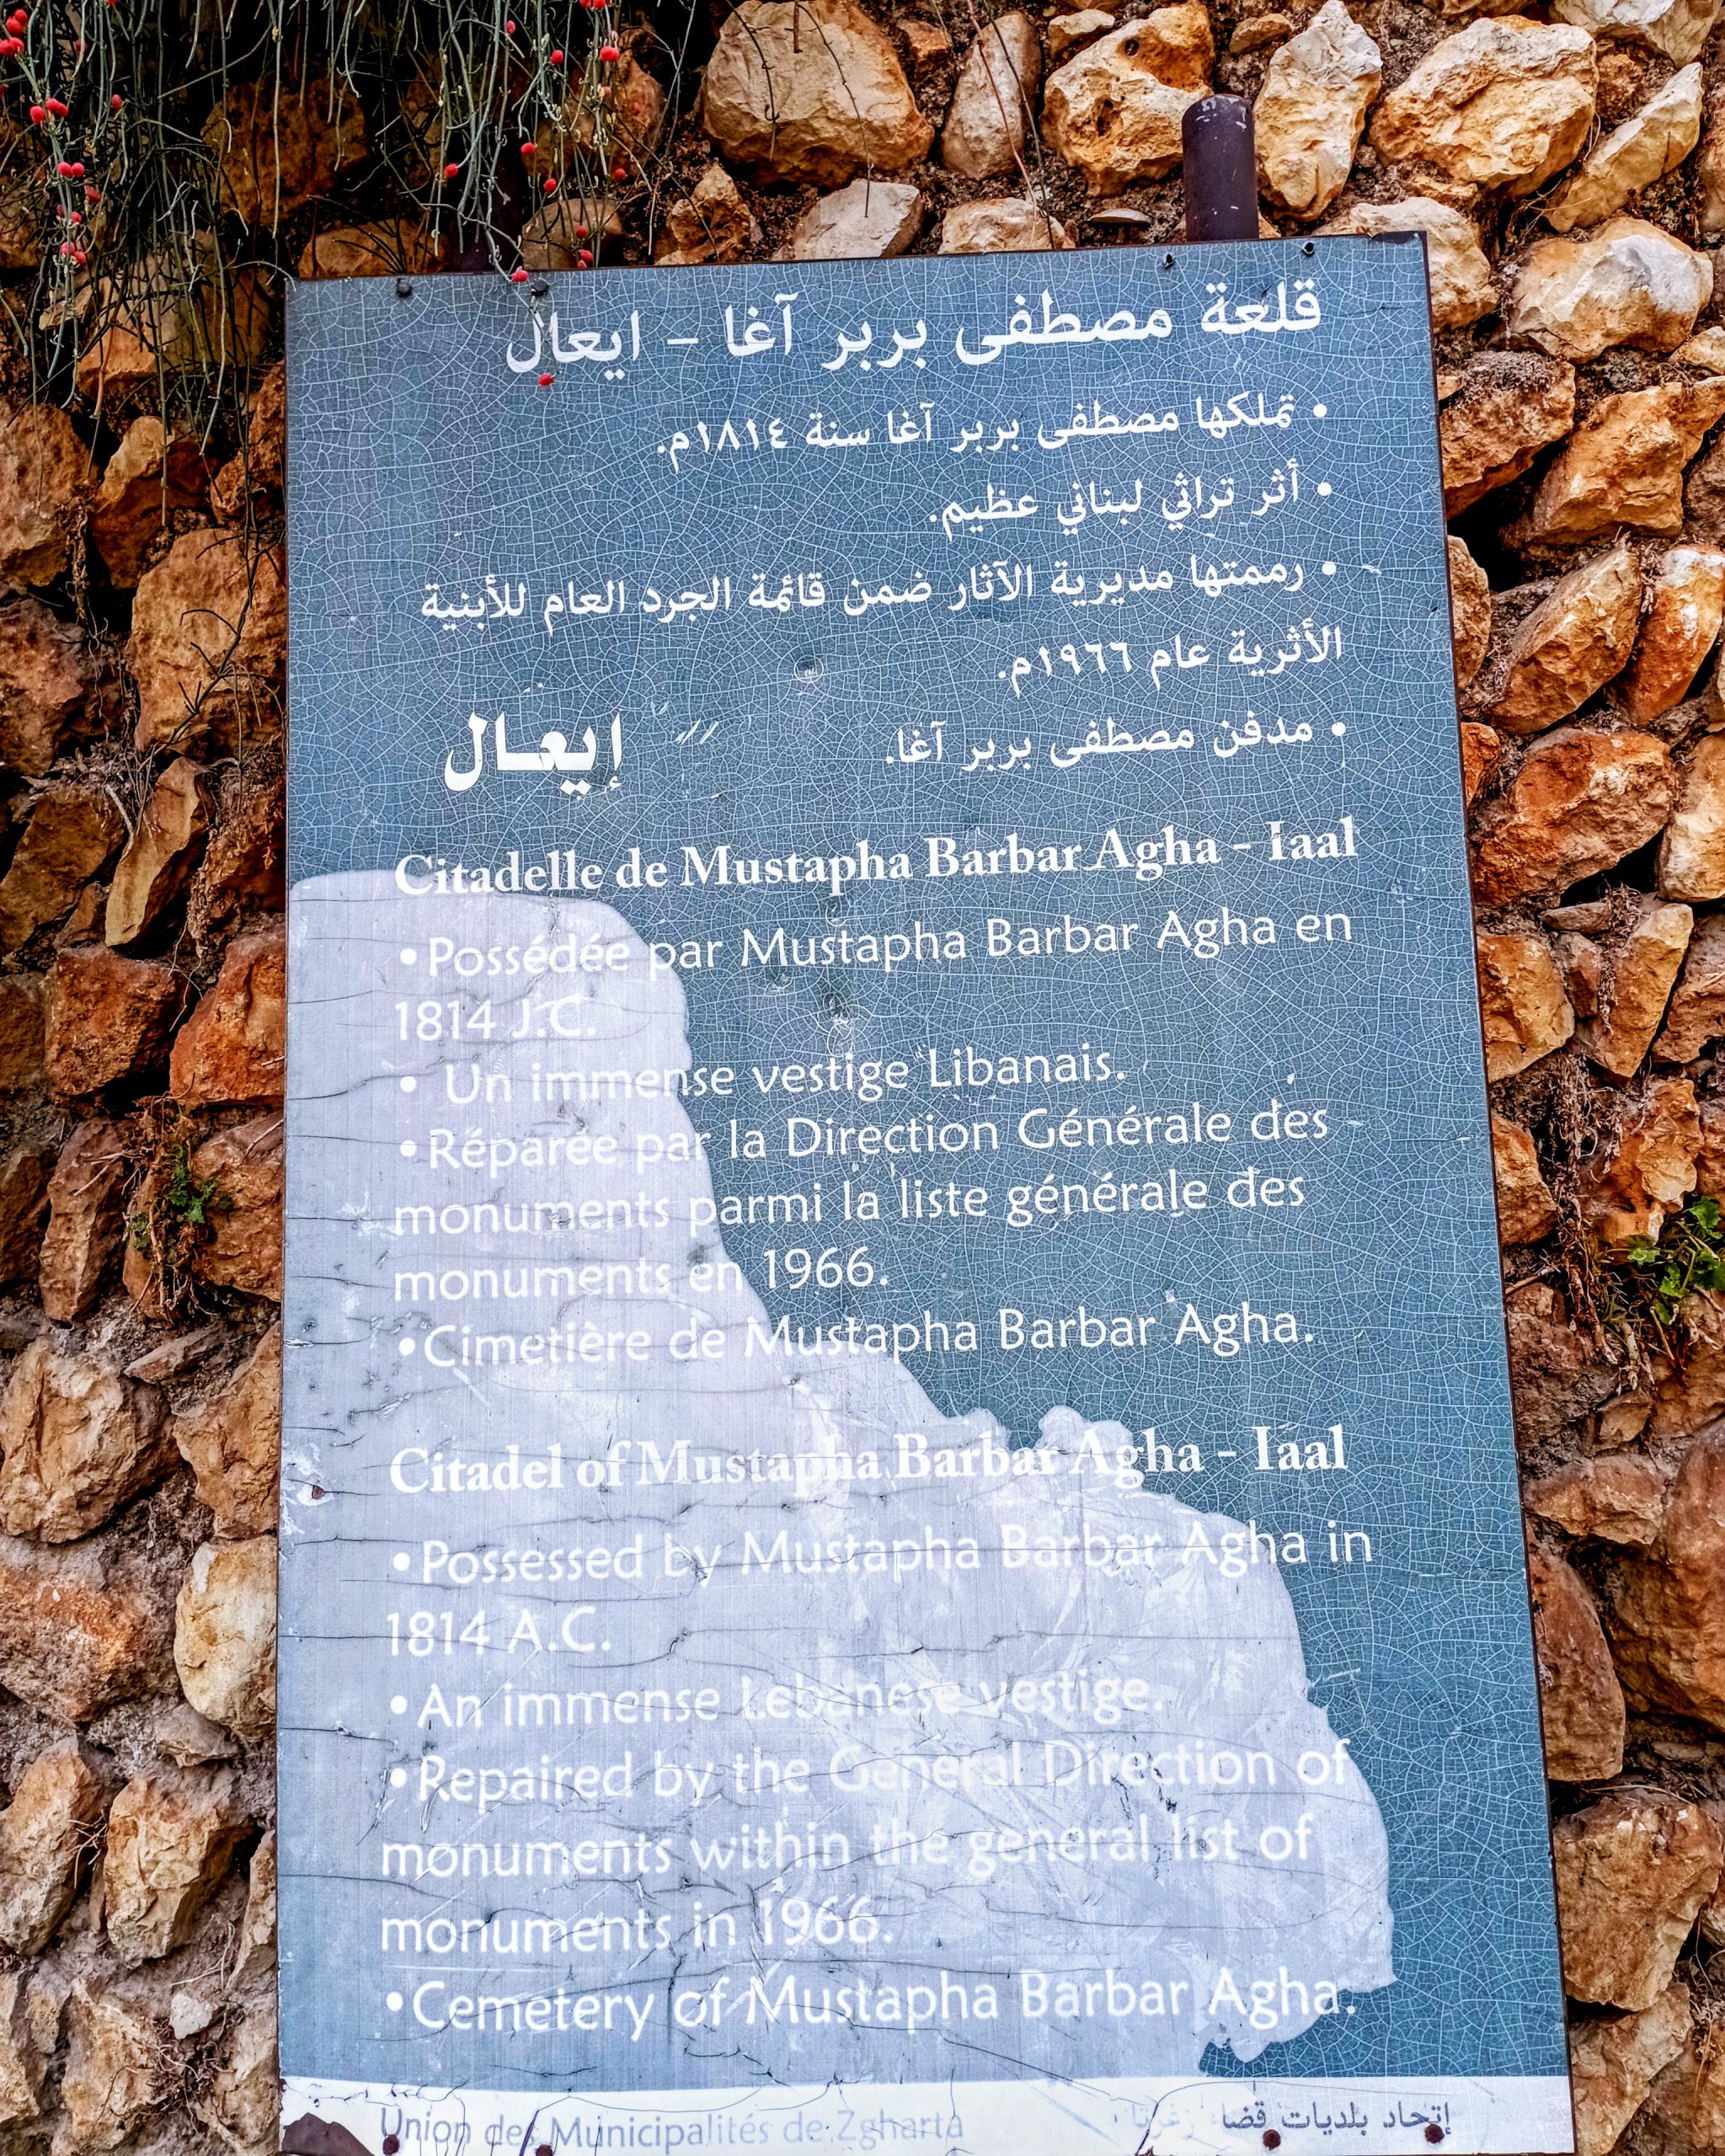 قلعة مصطفى بربر آغا - ايعال
• تملكها مصطفى بربر آغا سنة ١٨١٤م.
• أثر تراثي لبناني عظيم.
• رممتها مديرية الآثار ضمن قائمة الجرد العام للأبنية
الأثرية عام ١٩٦٦م.
• مدفن مصطفى بربر آغا.
إيعال
Citadelle de Mustapha Barbar Agha - Iaal
•Possédée par Mustapha Barbar Agha en
1814 J.C.
• Un immense vestige Libanais.
•Réparée par la Direction Générale des
monuments parmi la liste générale des
monuments en 1966.
•Cimetière de Mustapha Barbar Agha.
Citadel of Mustapha Barbar Agha - Iaal
•Possessed by Mustapha Barbar Agha in
1814 A.C.
•An immense Lebanese vestige.
•Repaired by the General Direction of
monuments within the general list of
monuments in 1966.
•Cemetery of Mustapha Barbar Agha.
Union des Municipalités de Zgharta
إتحاد بلديات قضاء زغرتا